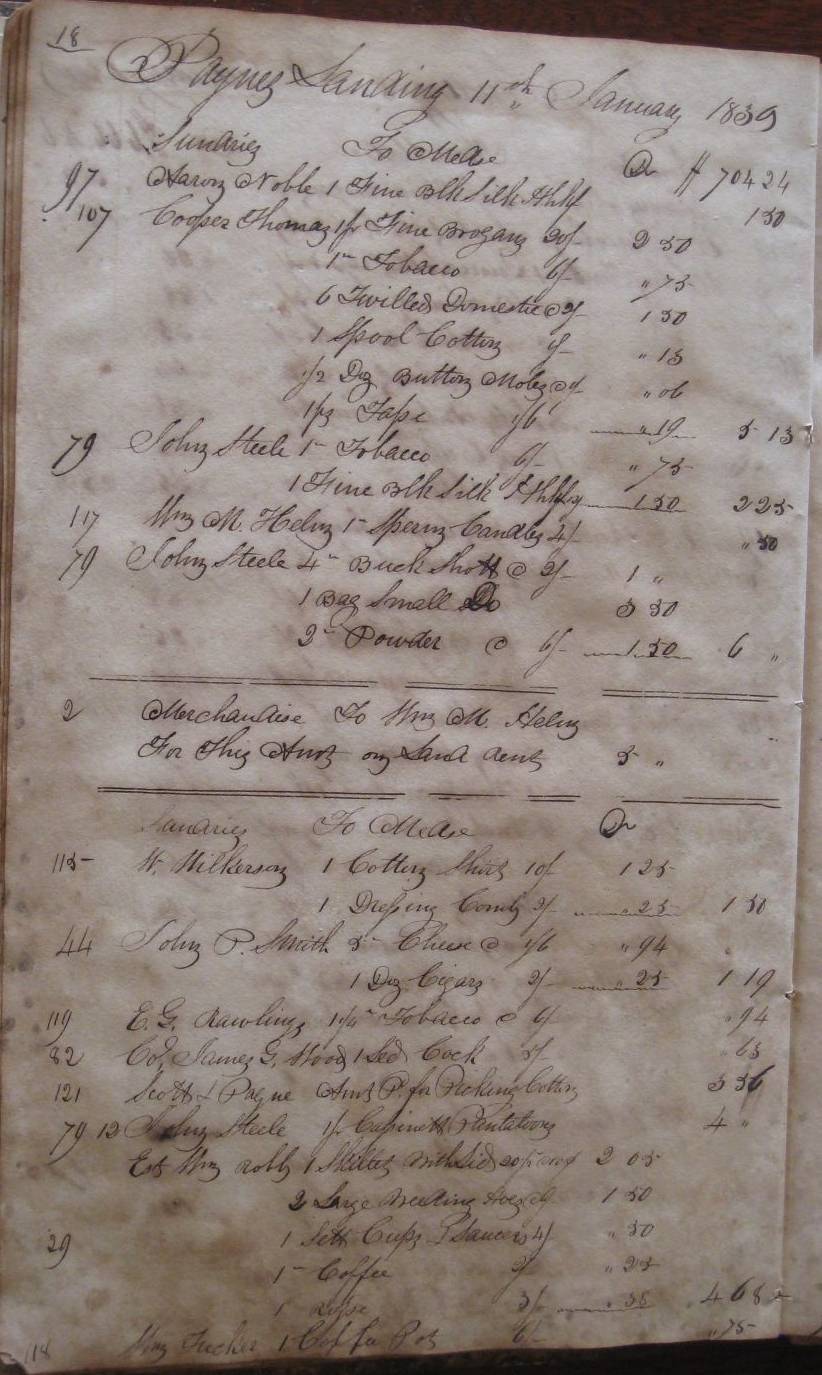 18
Paynes Landing 11th January 1839
Sundries To Mdse Dr $ 704 24
97 Aaron Noble 1 Fine Blk Silk Hhkf 1 50
107 Cooper Thomas 1 pr Fine Brogans 20/- 2 50
1 " Tobacco 6/- " 75
6 Twilled Domestic @ 2/- 1 50
1 Spool Cotton 1/- " 13
1/2 Doz Button Moles @ 1/- " 06
1 ps Tape 1/6 " 19 5 13
79 John Steele 1 " Tobacco 6/- " 75
1 Fine Blk Silk Hhkf 1 50 2 25
117 Wm M. Helm 1 " Sperm Candles 4/- " 50
79 John Steele 4 " Buck Shott @ 2/- 1 "
1 Bag Small Do 3 50
2 " Powder @ 6/- 1 50 6 "
2 Merchandise To Wm M. Helm
For This Amt on 5 "
Sundries To Mdse Dr
115 W. Wilkerson 1 Cotton Shirt 10/- 1 25
1 Dressing Comb 2/- " 25 1 50
44 John P. Smith 5 " Cheese @ 1/6 " 94
1 Doz Cigars 2/- " 25 1 19
119 E. G. Rawlings 1 1/4 " Tobacco @ 6/- " 94
82 Col James G. Wood 1 Led Cock 5/- " 63
121 Scott & Payne Amt P. for Picking Cotton 3 36
79 12 John Steele 1 pr Cassinett Pantaloons 4 "
Est Wm Robb 1 Skillet With Lid 2 05
2 Large Weeding Hoes 1 50
1 Sett Cups & Saucers 4/- " 50
29 1 " Coffee 2/- " 25
1 3/- " 38 4 68
118 Wm Tucker 1 Coffee Pot 6/- " 75